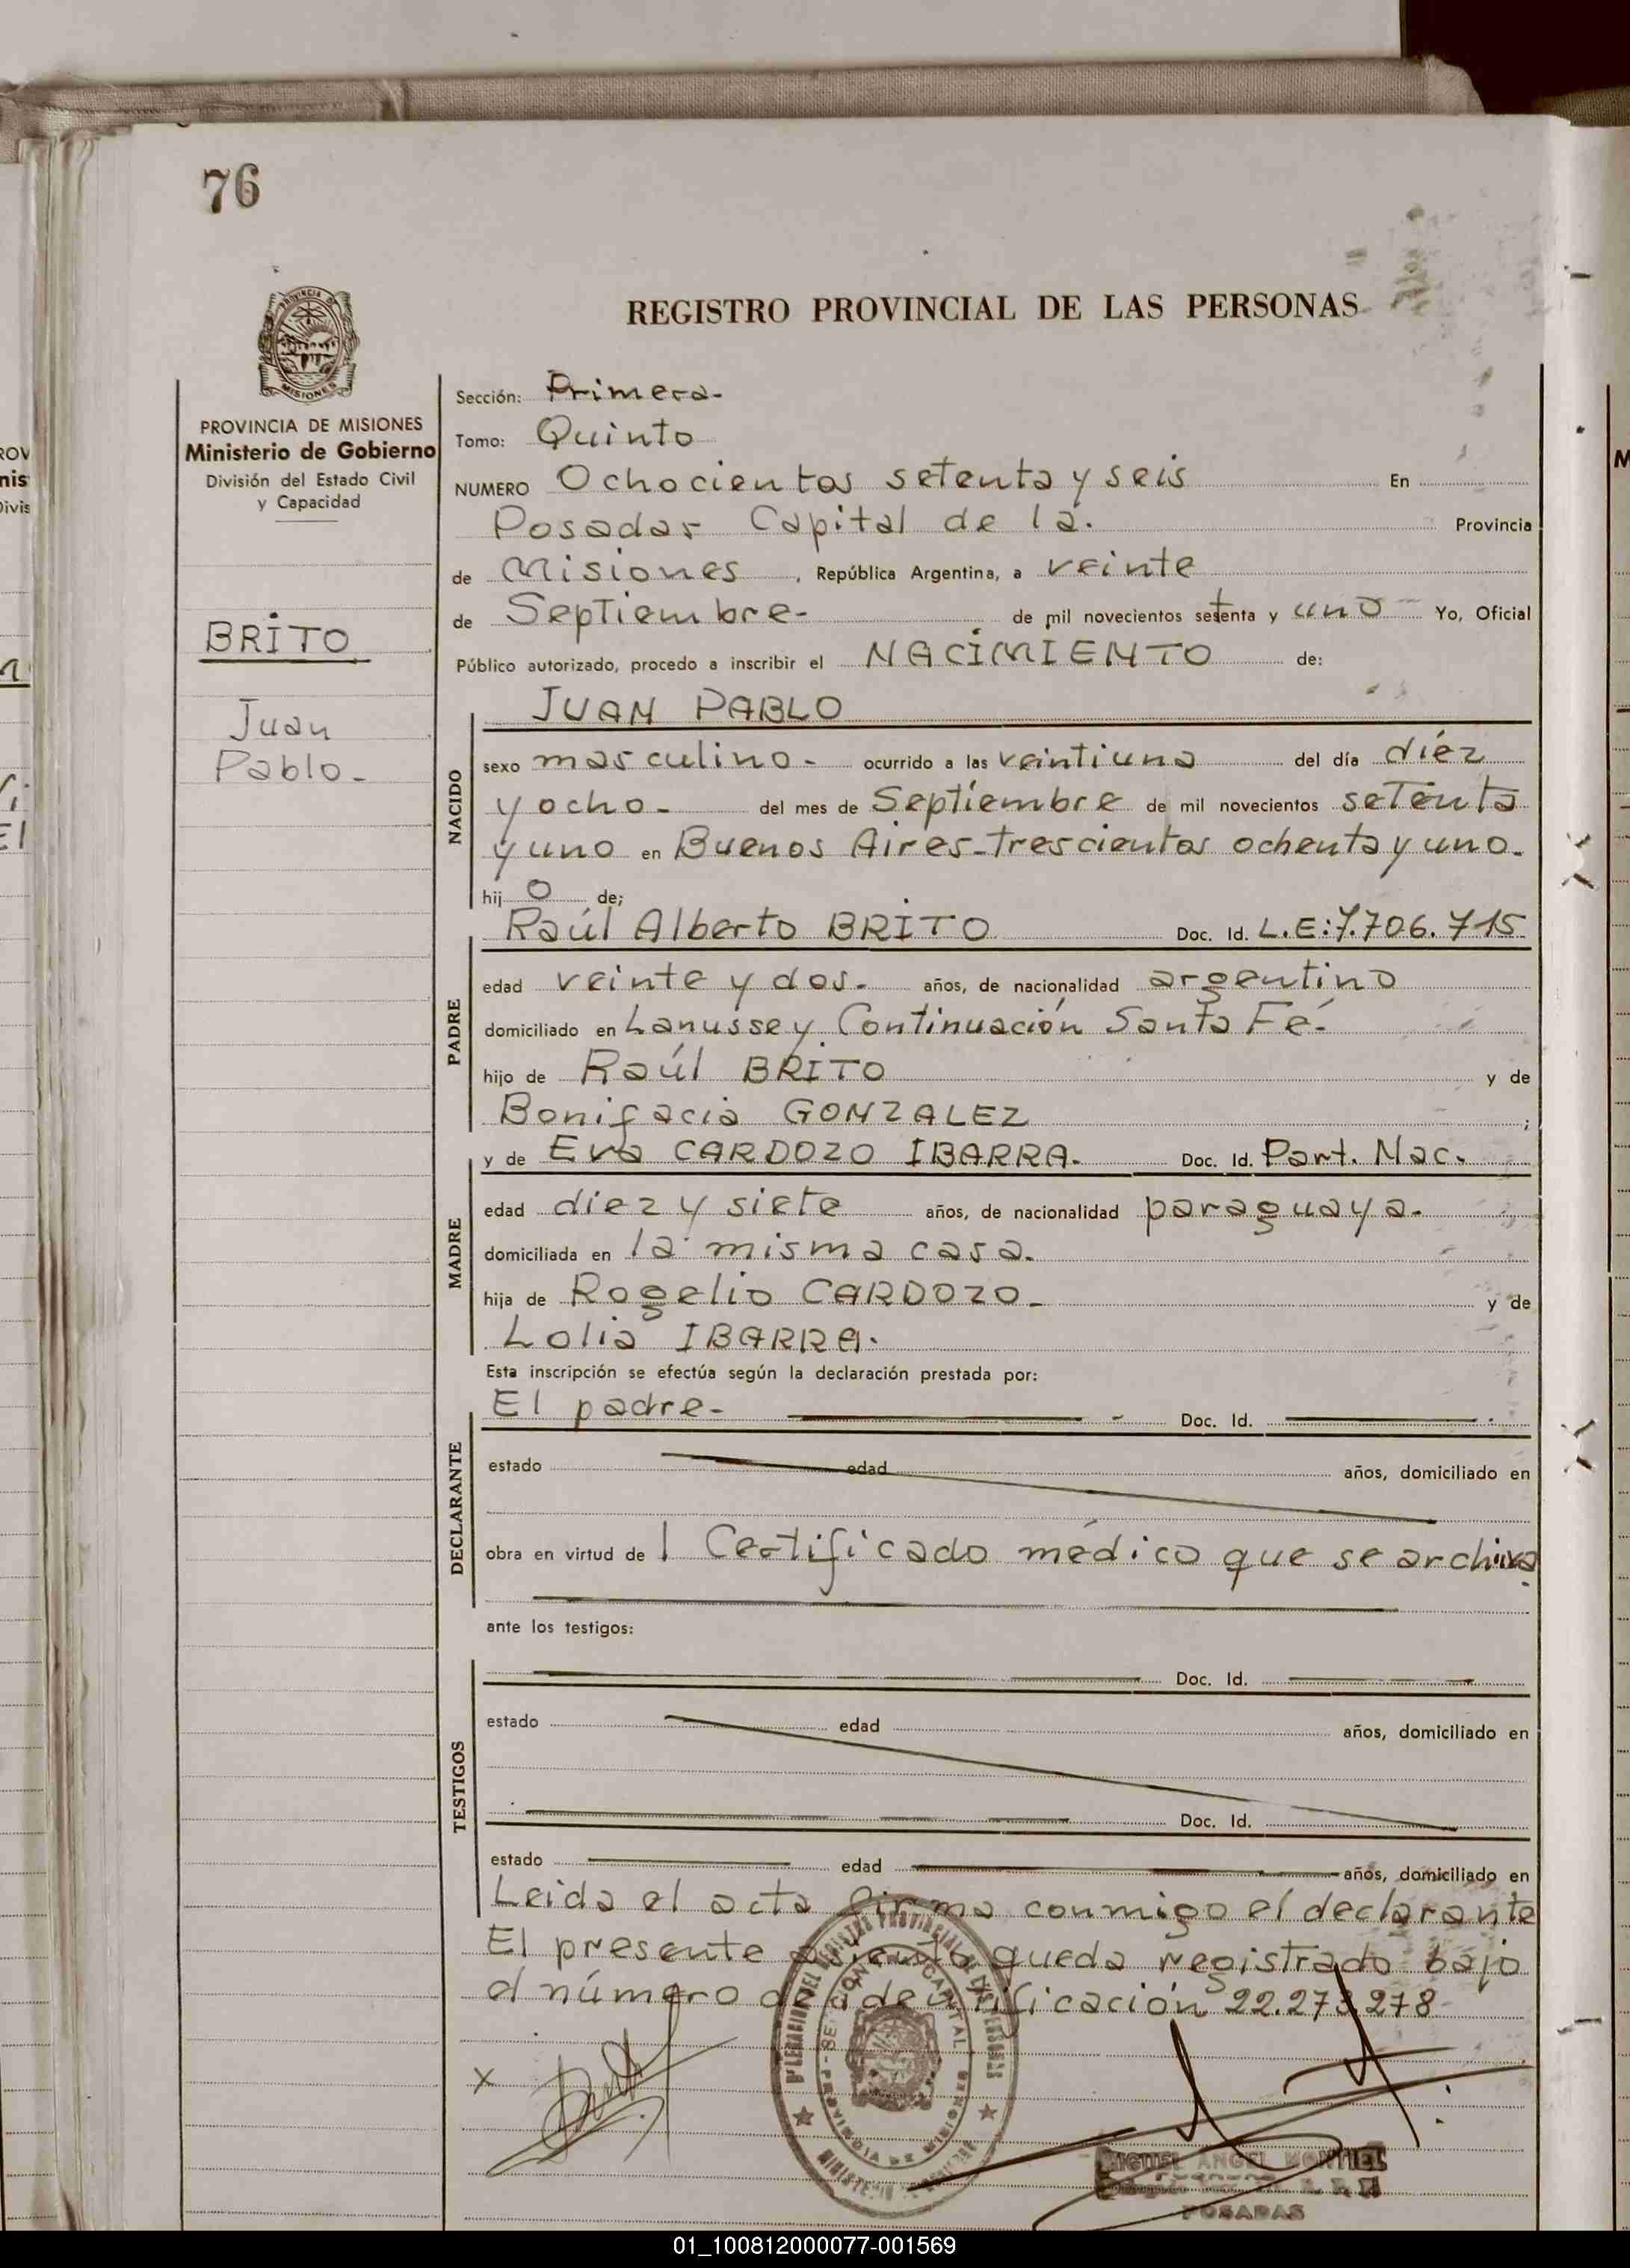 76
REGISTRO PROVINCIAL DE LAS PERSONAS
PROVINCIA DE MISIONES
Ministerio de Gobierno
División del Estado Civil
y Capacidad
BRITO
Juan
Pablo-
Sección: Primera-
Tomo: Quinto
NUMERO Ochocientos setenta y seis En
Posadas Capital de la. Provincia
de Misiones, República Argentina, a veinte
de Septiembre- de mil novecientos setenta y uno Yo, Oficial
Público autorizado, procedo a inscribir el NACIMIENTO de:
JUAN PABLO
NACIDO
sexo masculino- ocurrido a las veintiuna del día diéz
y ocho- del mes de Septiembre de mil novecientos setenta
y uno en Buenos Aires-trescientos ochenta y uno.
hij o de;
Raúl Alberto BRITO Doc. Id. L.E:7.706.715
PADRE
edad veinte y dos- años, de nacionalidad argentino
domiciliado en Lanusse y Continuación Santa Fé-
hijo de Raúl BRITO y de
Bonifacia GONZALEZ ;
y de Eva CARDOZO IBARRA- Doc. Id. Part. Nac.
MADRE
edad diez y siete años, de nacionalidad paraguaya.
domiciliada en la misma casa.
hija de Rogelio CARDOZO- y de
Lolia IBARRA.
Esta inscripción se efectúa según la declaración prestada por:
El padre- Doc. Id.
DECLARANTE
estado edad años, domiciliado en
obra en virtud de l Certificado médico que se archiva
ante los testigos:
Doc. Id.
TESTIGOS
estado edad años, domiciliado en
Doc. Id.
estado edad años, domiciliado en
Leida el acta firma conmigo el declarante
El presente asiento queda registrado bajo
el número de identificación 22.273.278
x
MIGUEL ANGEL MONTIEL
POSADAS
01_100812000077-001569